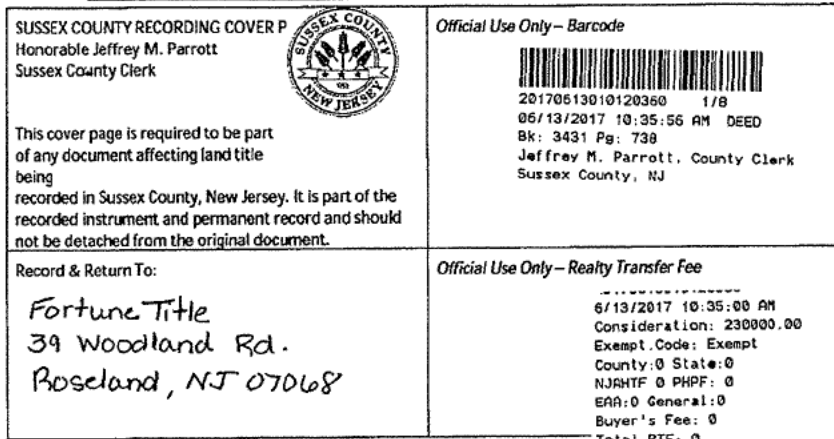 SUSSEX COUNTY RECORDING COVER P
Honorable Jeffrey M. Parrott
Sussex County Clerk
SUSSEX COUNTY
NEW JERSEY
This cover page is required to be part
of any document affecting land title
being
recorded in Sussex County, New Jersey. It is part of the
recorded instrument and permanent record and should
not be detached from the original document.
Official Use Only – Barcode
20170613010120360 1/8
06/13/2017 10:35:56 AM DEED
Bk: 3431 Pg: 738
Jeffrey M. Parrott, County Clerk
Sussex County, NJ
Record & Return To:
Fortune Title
39 Woodland Rd.
Roseland, NJ 07068
Official Use Only – Realty Transfer Fee
6/13/2017 10:35:00 AM
Consideration: 230000.00
Exempt.Code: Exempt
County:0 State:0
NJAHTF 0 PHPF: 0
EAA:0 General:0
Buyer's Fee: 0
Total RTF: 0